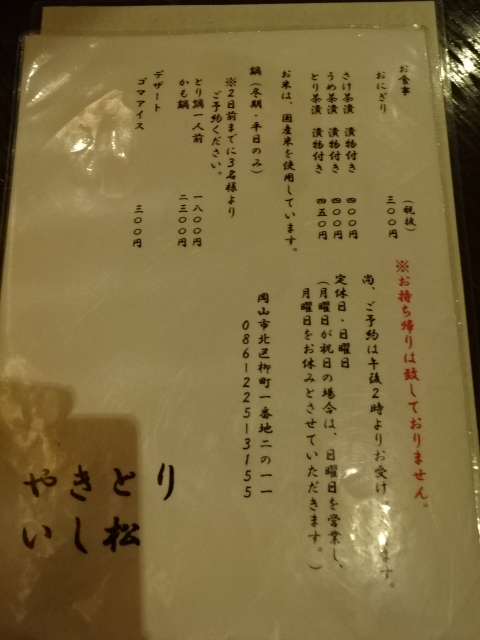 お食事
(税抜)
おにぎり 三〇〇円
さけ茶漬 漬物付き 四〇〇円
うめ茶漬 漬物付き 四〇〇円
とり茶漬 漬物付き 四五〇円
お米は、国産米を使用しています。
鍋(冬期・平日のみ)
※2日前までに3名様より
ご予約ください。
とり鍋一人前 一八〇〇円
かも鍋 二三〇〇円
デザート
ゴマアイス 三〇〇円
※お持ち帰りは致しておりません。
尚、ご予約は午後2時よりお受け
定休日・日曜日
(月曜日が祝日の場合は、日曜日を営業し、
月曜日をお休みとさせていただきます。)
岡山市北区柳町一番地二の一一
086-225-3155
やきとり
いし松